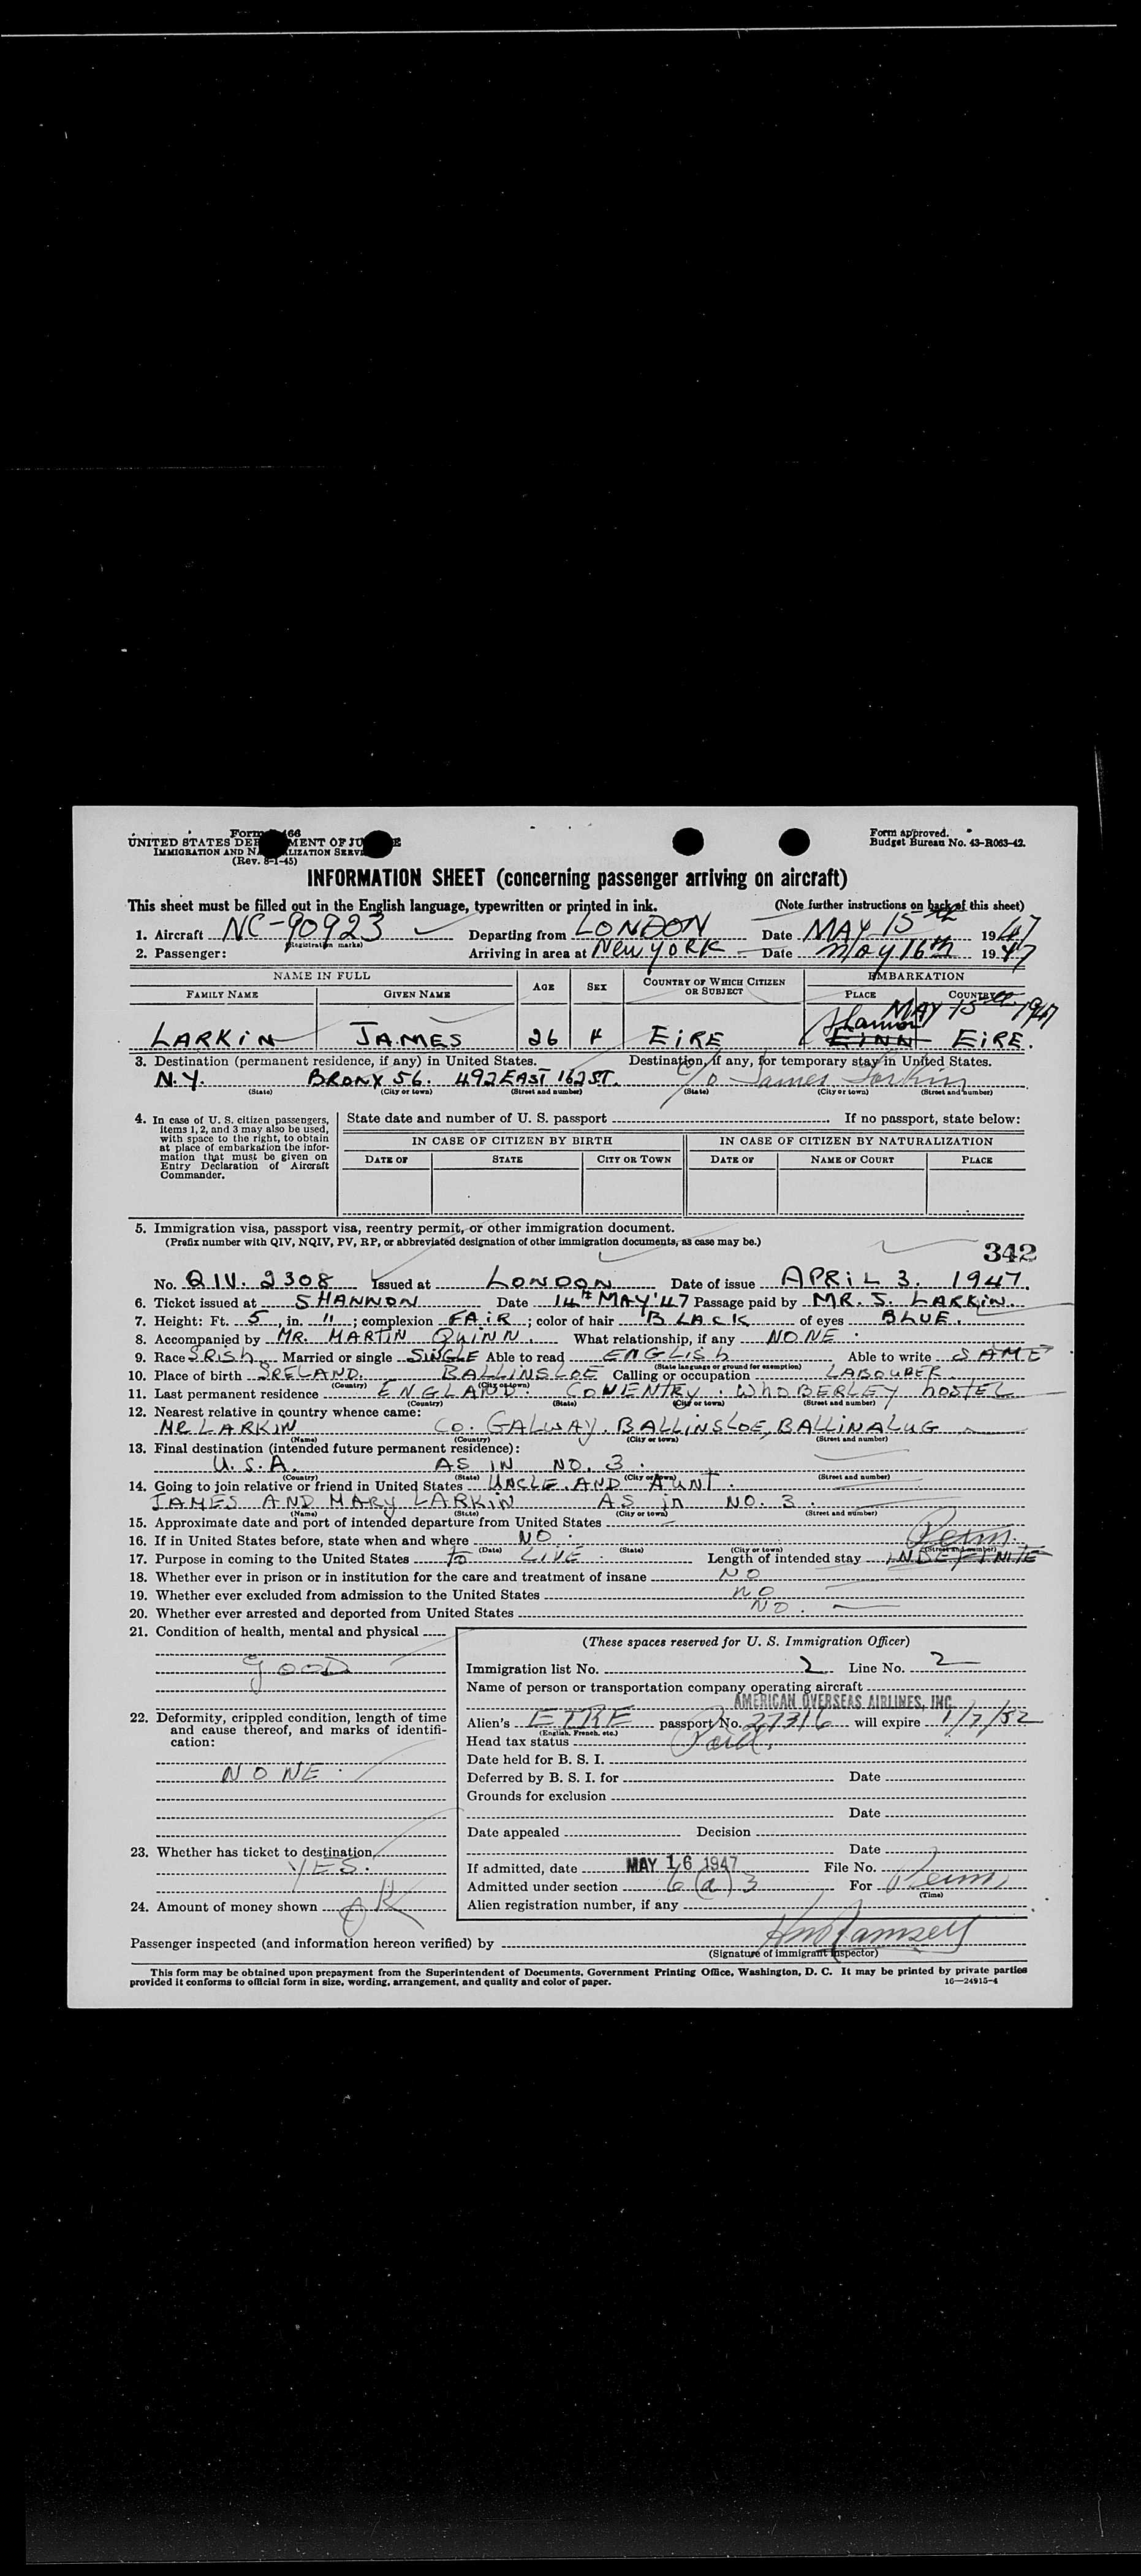 Form 466
UNITED STATES DEPARTMENT OF JUSTICE
IMMIGRATION AND NATURALIZATION SERVICE
(Rev. 8-1-45)
Form approved.
Budget Bureau No. 43-R063-42.
INFORMATION SHEET (concerning passenger arriving on aircraft)
This sheet must be filled out in the English language, typewritten or printed in ink. (Note further instructions on back of this sheet)
1. Aircraft NC-90923 Departing from LONDON Date MAY 15th 1947
(Registration marks)
2. Passenger: Arriving in area at New YORK Date MAY 16th 1947
NAME IN FULL AGE SEX COUNTRY OF WHICH CITIZEN OR SUBJECT EMBARKATION
FAMILY NAME GIVEN NAME PLACE COUNTRY
MAY 15th 1947
LARKIN JAMES 26 Shannon EIRE EIRE.
3. Destination (permanent residence, if any) in United States. Destination, if any, for temporary stay in United States.
N.Y. BRONX 56. 492 EAST 162 ST. c/o James Larkin
(State) (City or town) (Street and number) (State) (City or town) (Street and number)
4. In case of U. S. citizen passengers, items 1, 2, and 3 may also be used, with space to the right, to obtain at place of embarkation the information that must be given on Entry Declaration of Aircraft Commander.
State date and number of U. S. passport If no passport, state below:
IN CASE OF CITIZEN BY BIRTH IN CASE OF CITIZEN BY NATURALIZATION
DATE OF STATE CITY OR TOWN DATE OF NAME OF COURT PLACE
5. Immigration visa, passport visa, reentry permit, or other immigration document.
(Prefix number with QIV, NQIV, PV, RP, or abbreviated designation of other immigration documents, as case may be.)
342
No. QIV. 2308 Issued at LONDON Date of issue APRIL 3. 1947.
6. Ticket issued at SHANNON Date 14th MAY '47 Passage paid by MR. S. LARKIN
7. Height: Ft. 5, in. 11; complexion FAIR; color of hair BLACK of eyes BLUE.
8. Accompanied by MR. MARTIN QUINN What relationship, if any NONE.
9. Race IRISH Married or single SINGLE Able to read ENGLISH Able to write SAME
(State language or ground for exemption)
10. Place of birth IRELAND. BALLINSLOE Calling or occupation LABOURER
(Country) (City or town)
11. Last permanent residence ENGLAND. COVENTRY. WHOBERLEY HOSTEL
(Country) (State) (City or town) (Street and number)
12. Nearest relative in country whence came:
MR LARKIN CO. GALWAY. BALLINSLOE, BALLINALUG
(Name) (Country) (City or town) (Street and number)
13. Final destination (intended future permanent residence):
U.S.A. AS IN NO. 3.
(Country) (State) (City or town) (Street and number)
14. Going to join relative or friend in United States UNCLE. AND AUNT.
JAMES AND MARY LARKIN AS in NO. 3.
(Name) (State) (City or town) (Street and number)
15. Approximate date and port of intended departure from United States
16. If in United States before, state when and where NO. Perm.
(Date) (State) (City or town) (Street and number)
17. Purpose in coming to the United States to LIVE. Length of intended stay INDEFINITE
18. Whether ever in prison or in institution for the care and treatment of insane NO
19. Whether ever excluded from admission to the United States NO
20. Whether ever arrested and deported from United States NO.
21. Condition of health, mental and physical
GOOD
22. Deformity, crippled condition, length of time and cause thereof, and marks of identification:
NONE.
23. Whether has ticket to destination,
YES.
24. Amount of money shown OK
(These spaces reserved for U. S. Immigration Officer)
Immigration list No. 2 Line No. 2
Name of person or transportation company operating aircraft
AMERICAN OVERSEAS AIRLINES, INC.
Alien's EIRE passport No. 27316 will expire 1/7/52
(English, French, etc.)
Head tax status Paid.
Date held for B. S. I.
Deferred by B. S. I. for Date
Grounds for exclusion
Date
Date appealed Decision
Date
If admitted, date MAY 16 1947 File No.
Admitted under section 6(a)3 For Perm
(Time)
Alien registration number, if any
Passenger inspected (and information hereon verified) by
(Signature of immigrant inspector)
This form may be obtained upon prepayment from the Superintendent of Documents, Government Printing Office, Washington, D. C. It may be printed by private parties
provided it conforms to official form in size, wording, arrangement, and quality and color of paper. 16—24915-4